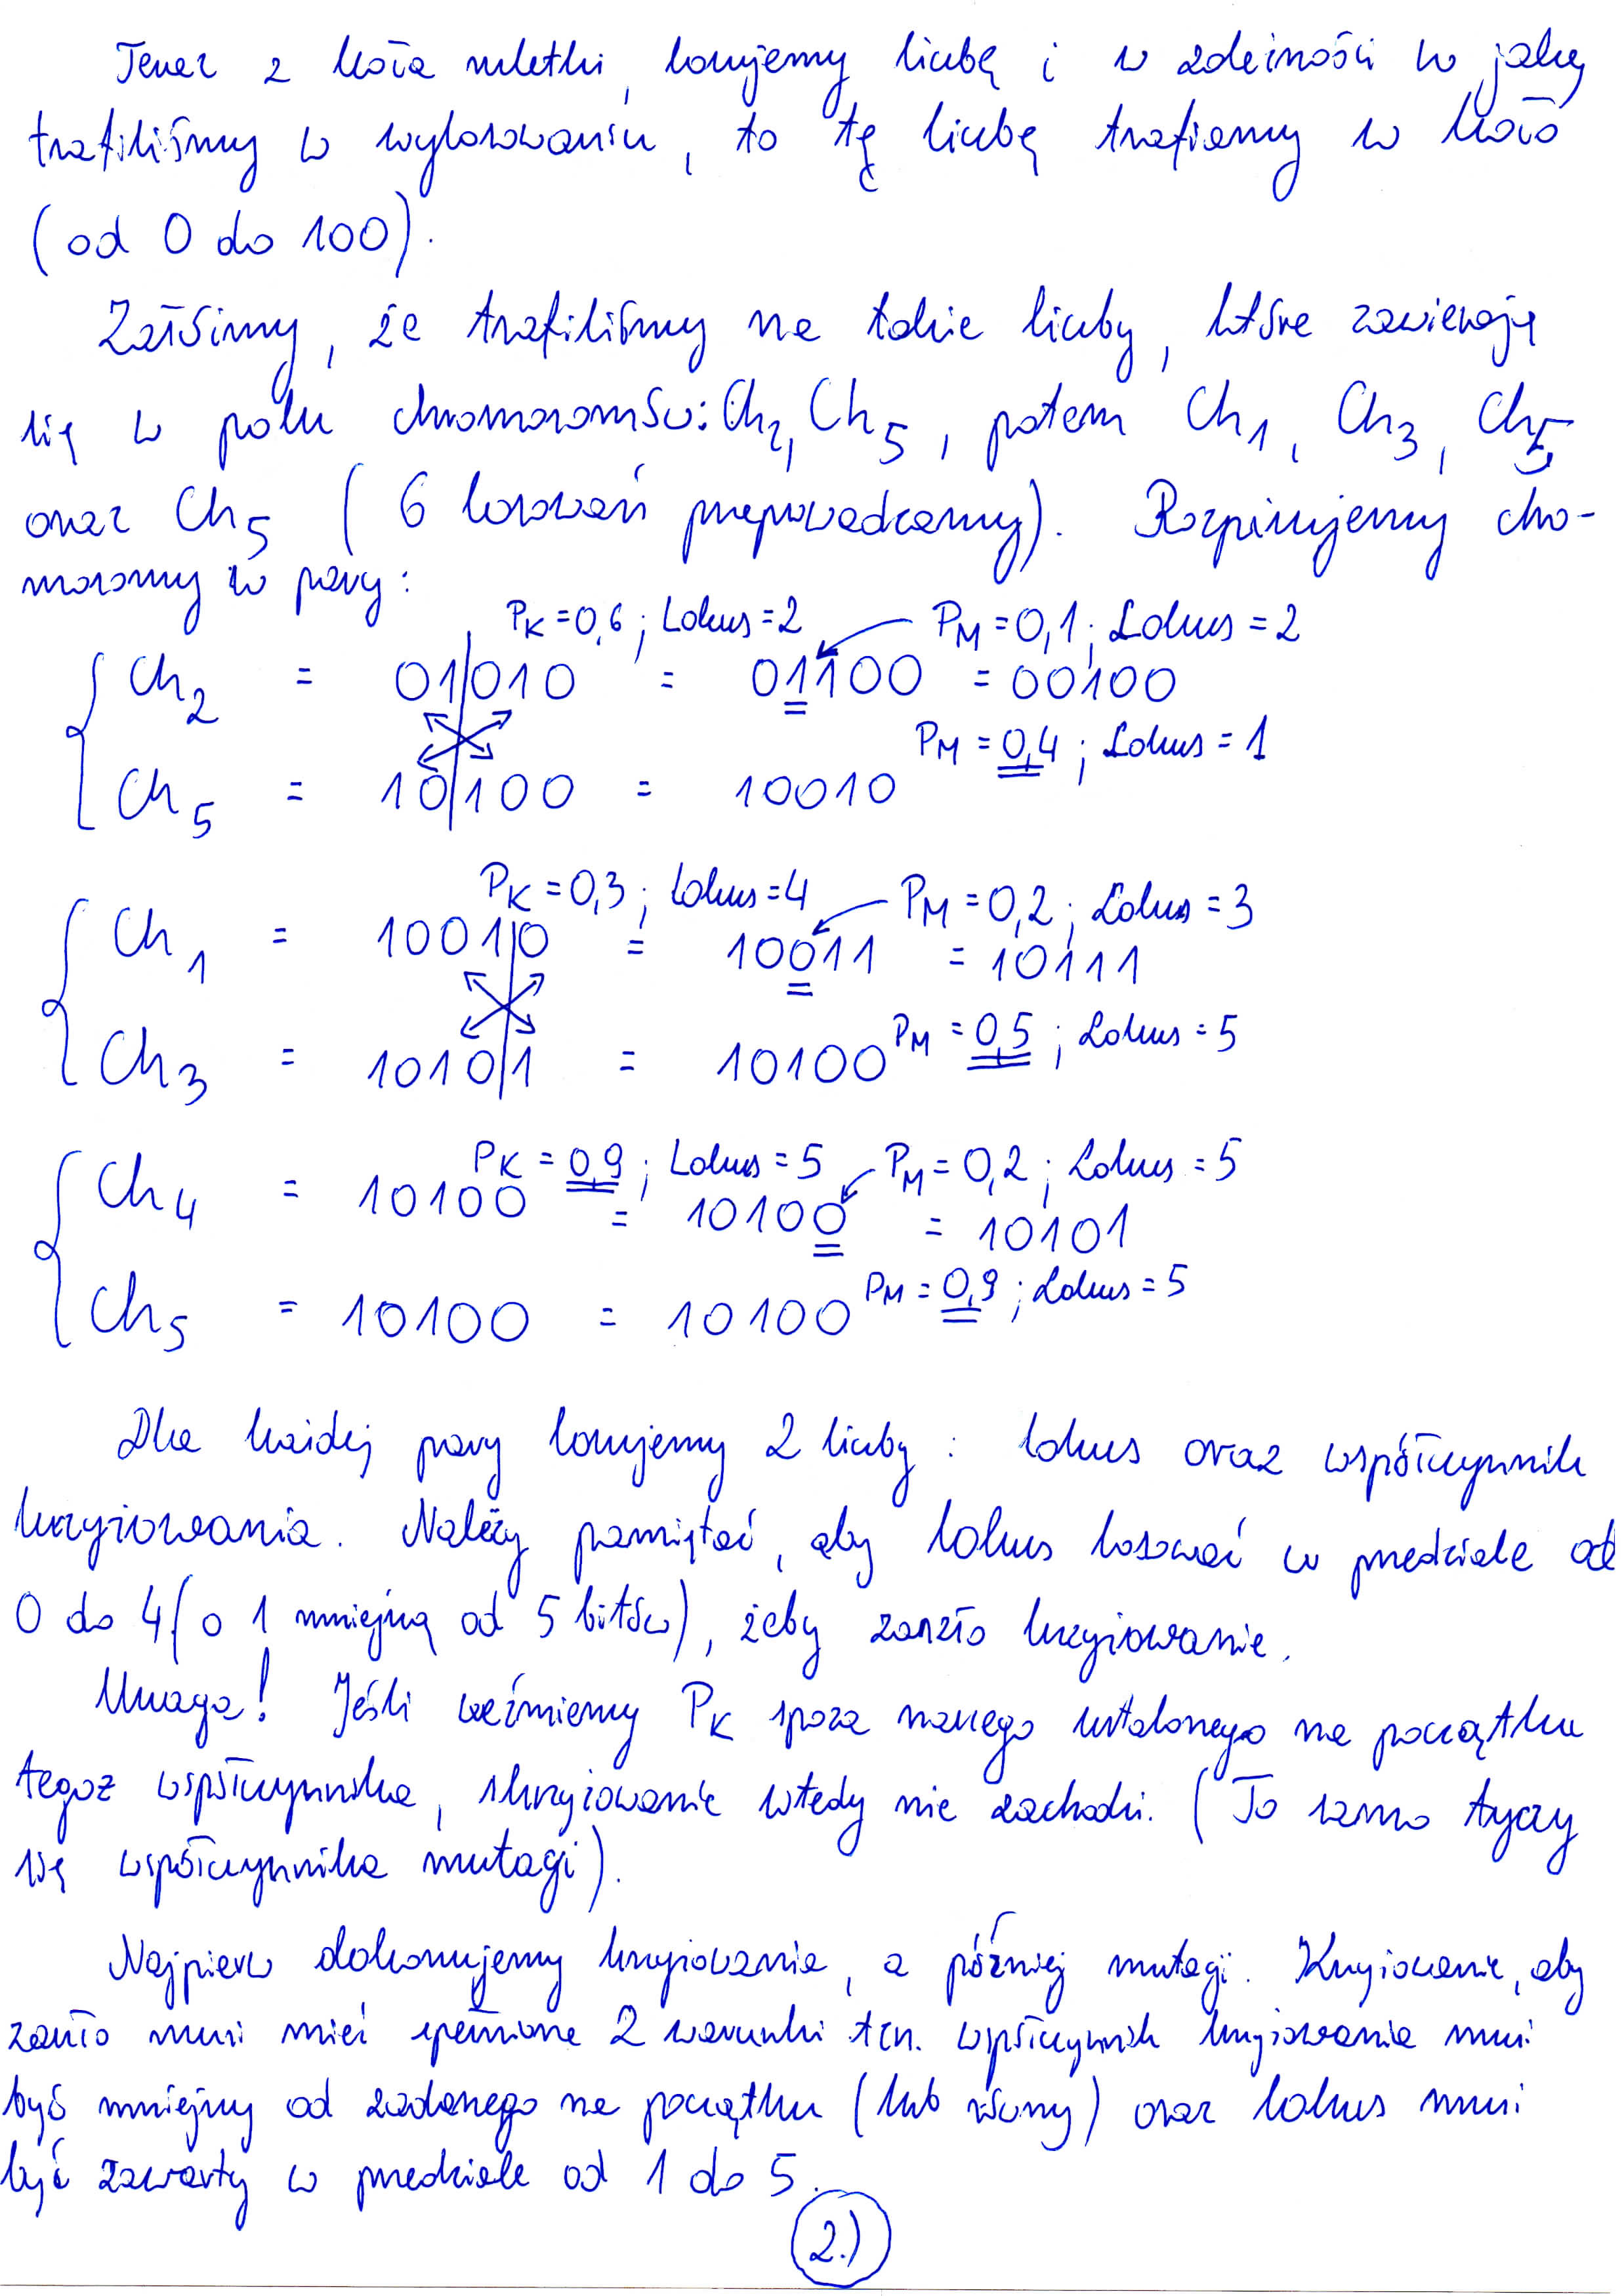 Teraz z koła ruletki, losujemy liczbę i w zależności w jaką
trafiliśmy w wylosowaniu, to tę liczbę trafiamy w koło
(od 0 do 100).
Załóżmy, że trafiliśmy na takie liczby, które zawierają
się w polu chromosomów: Ch2, Ch5, potem Ch1, Ch3, Ch5,
oraz Ch5 (6 losowań przeprowadzamy). Rozpisujemy chro-
mosomy w pary:
PK = 0,6 ; Lokus = 2 PM = 0,1 ; Lokus = 2
Ch2 = 01|010 = 01100 = 00100
PM = 0,4 ; Lokus = 1
Ch5 = 10|100 = 10010
PK = 0,3 ; Lokus = 4 PM = 0,2 ; Lokus = 3
Ch1 = 1001|0 = 10011 = 10111
PM = 0,5 ; Lokus = 5
Ch3 = 1010|1 = 10100
PK = 0,9 ; Lokus = 5 PM = 0,2 ; Lokus = 5
Ch4 = 10100 = 10100 = 10101
PM = 0,9 ; Lokus = 5
Ch5 = 10100 = 10100
Dla każdej pary losujemy 2 liczby : lokus oraz współczynnik
krzyżowania. Należy pamiętać, aby lokus losować w przedziale od
0 do 4 (o 1 mniejszą od 5 bitów), żeby zaszło krzyżowanie.
Uwaga! Jeśli weźmiemy PK spoza naszego ustalonego na początku
tegoż współczynnika, skrzyżowanie wtedy nie zachodzi. (To samo tyczy
się współczynnika mutacji).
Najpierw dokonujemy krzyżowania, a później mutacji. Krzyżowanie, aby
zaszło musi mieć spełnione 2 warunki tzn. współczynnik krzyżowania musi
być mniejszy od zadanego na początku (lub równy) oraz lokus musi
być zawarty w przedziale od 1 do 5.
2.)